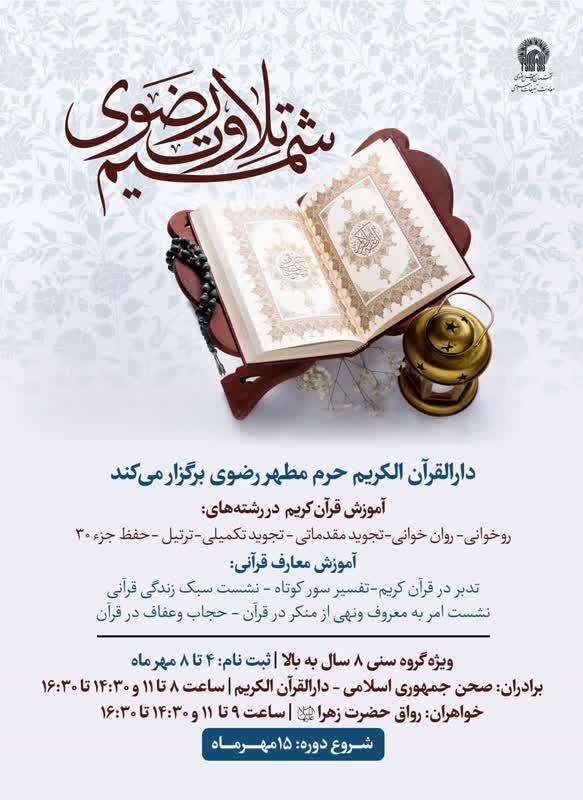 آستان قدس رضوی
معاونت تبلیغات اسلامی
شمیم تلاوت رضوی
دارالقرآن الکریم حرم مطهر رضوی برگزار می‌کند
آموزش قرآن کریم در رشته‌های:
روخوانی- روان خوانی-تجوید مقدماتی - تجوید تکمیلی-ترتیل -حفظ جزء ۳۰
آموزش معارف قرآنی:
تدبر در قرآن کریم-تفسیر سور کوتاه - نشست سبک زندگی قرآنی
نشست امر به معروف ونهی از منکر در قرآن - حجاب وعفاف در قرآن
ویژه گروه سنی ۸ سال به بالا | ثبت نام: ۴ تا ۸ مهر ماه
برادران: صحن جمهوری اسلامی - دارالقرآن الکریم | ساعت ۸ تا ۱۱ و ۱۴:۳۰ تا ۱۶:۳۰
خواهران: رواق حضرت زهرا | ساعت ۹ تا ۱۱ و ۱۴:۳۰ تا ۱۶:۳۰
شروع دوره: ۱۵مهرماه